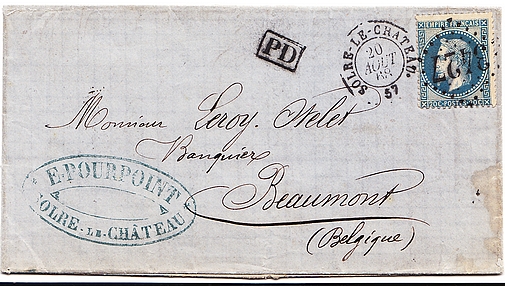 PD
SOLRE-LE-CHATEAU.
20
AOUT
68
57
EMPIRE FRANÇAIS
20C POSTES 20C
3427
Monsieur Leroy
Banquier
Beaumont
(Belgique)
E. POURPOINT
SOLRE-LE-CHÂTEAU